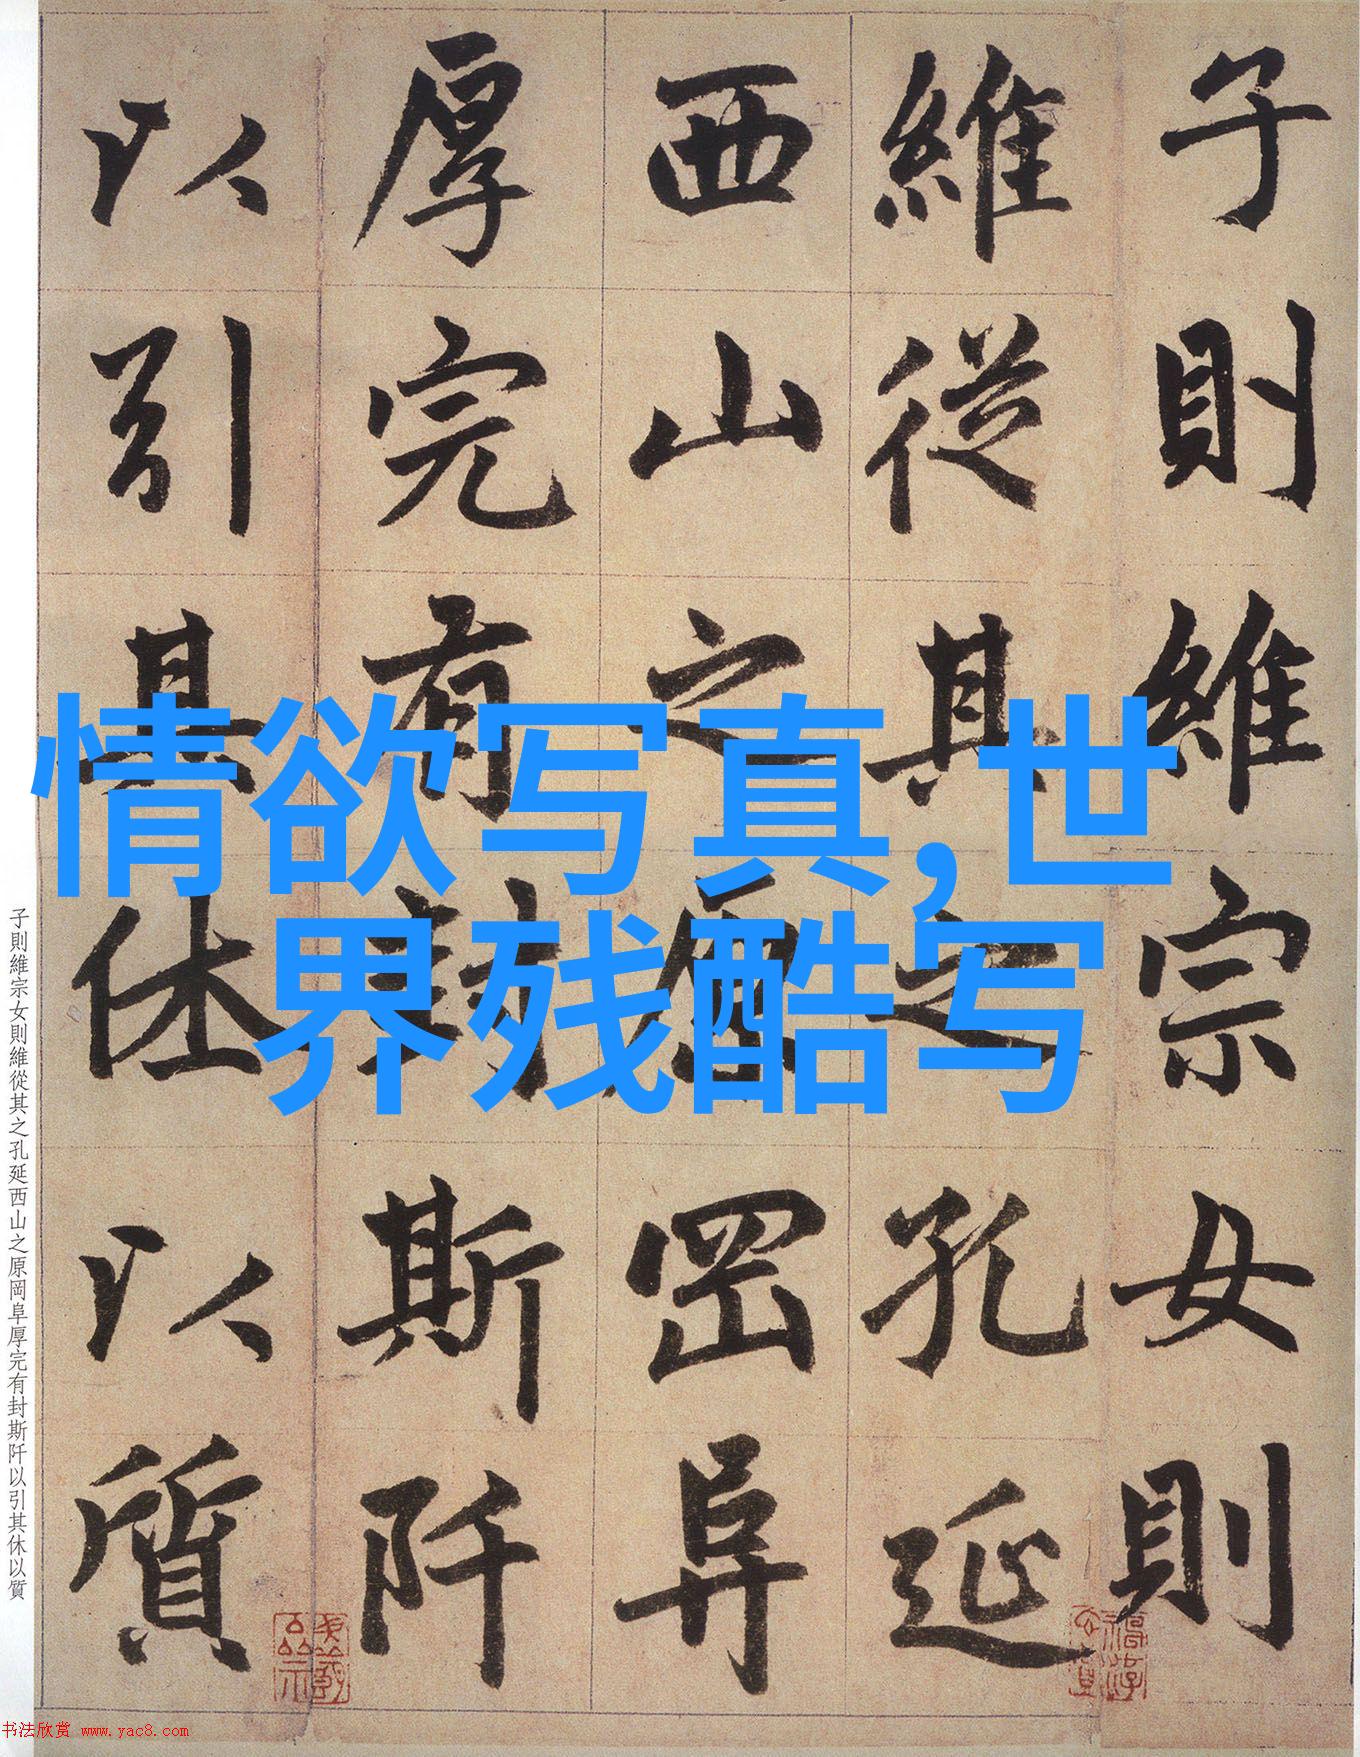 情欲写真,世
界残酷写
子則維宗女則
維從其之孔延
西山之原岡阜
厚完有封斯阡
以引其休以質
子則維宗女則維從其之孔延西山之原岡阜厚完有封斯阡以引其休以質
书法欣赏 www.yac8.com